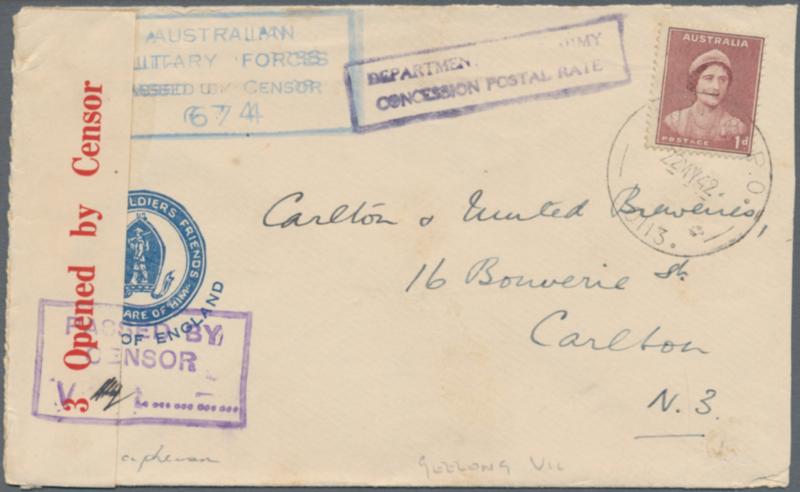 AUSTRALIAN
ITARY FORCES
ASSED BY CENSOR
674
DEPARTMEN ARMY
CONCESSION POSTAL RATE
AUSTRALIA
POSTAGE 1d
P.O.
22 MY 42
113.
3 Opened by Censor
LDIERS FRIENDS
ARE OF HIM
OF ENGLAND
PASSED BY
CENSOR
V
Carlton & United Breweries,
16 Bouverie St.
Carlton
N. 3.
GEELONG VIC